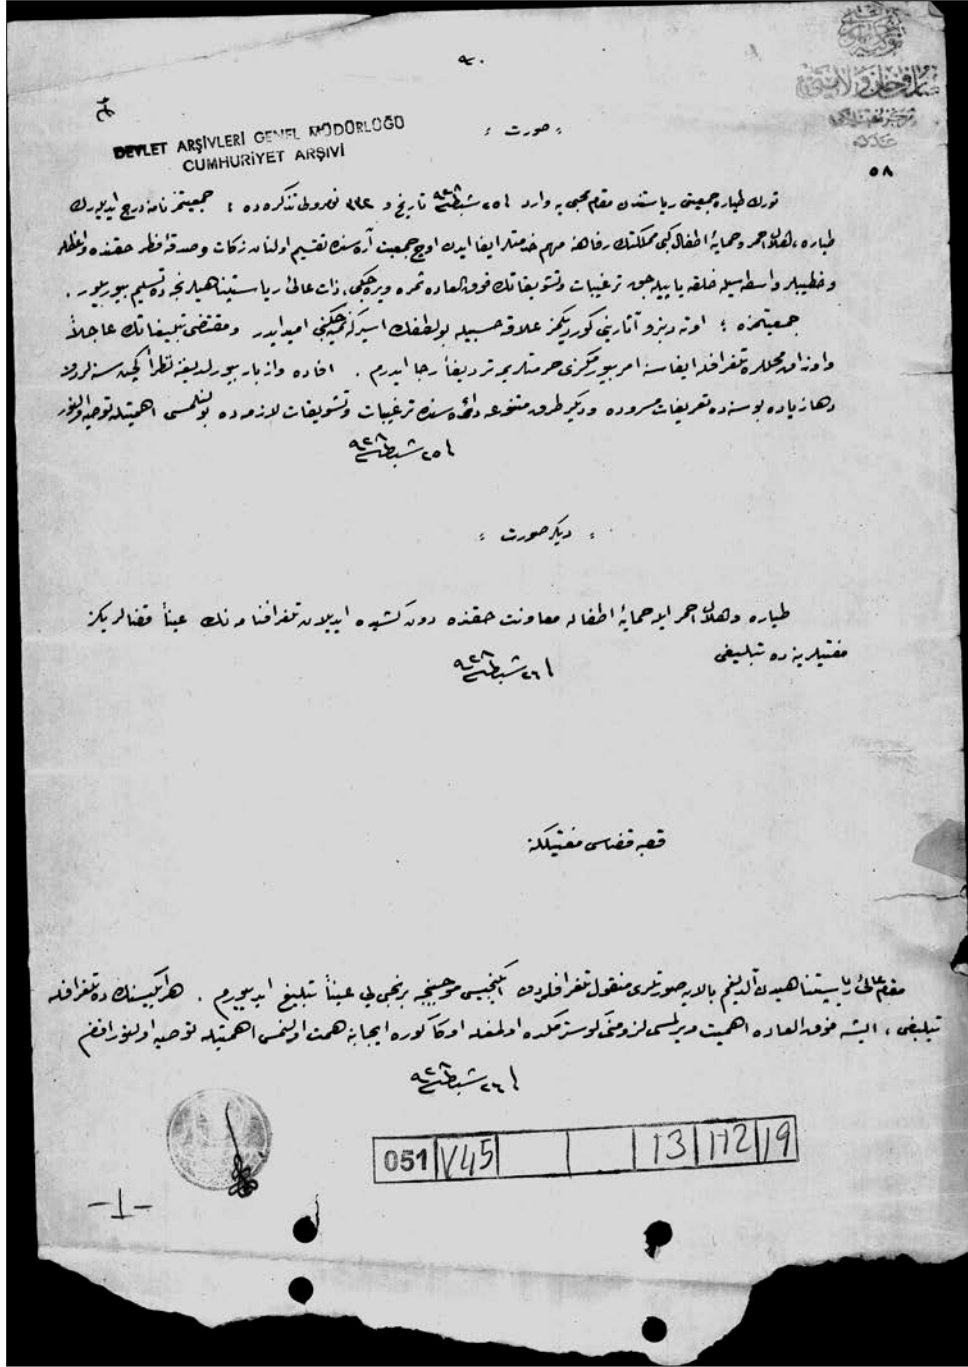 ٩٠
DEVLET ARŞİVLERİ GENEL MÜDÜRLÜĞÜ
CUMHURİYET ARŞİVİ
صاروخان ولايتى
= صورت =
٥٨
تورك طياره جمعيتى رياستندن مقام محبى يه وارد ٢٥ شباط ٩٢٨ تاريخ و ٦٣٢ نومرولى تذكره ده : جمعيتمز نامنه درج ايديلەرك
طياره ، هلال احمر وحمايۀ اطفال كبى مملكتك رفاهنه مهم خدمتلر ايفا ايدن اوچ جمعيت آره سنده تقسيم اولنان زكات وصدقۀ فطر حقنده واعظلر
وخطيبلر واسطه سيله خلقه ياپيله جق ترغيبات وتشويقاتك فوق العاده ثمره ويره جكنى ، ذات عالئ رياستپناهيلرنجه ده تسليم بيوريلور .
جمعيتمزه ؛ اوته دنبرو آثارينى كورديكمز علاقه حسبيله بو لطفك اسيركنميه جكنى اميد ايدر ومقتضى تبليغاتك عاجلاً
واوزاق محللره تلغرافله ايفاسنه امر بيورمكزى حرمتلريمه ترديفاً رجا ايدرم . افاده واز بار بيورلديغنه نظراً كچن سنه لردن
دها زياده بو سنه ده تعريفات مسروده وديكر طرق متنوعه دائره سنده ترغيبات وتشويقات لازمه ده بولنلمسى اهميتله توصيه اولنور
٢٥ شباط ٩٢٨
= ديكر صورت =
طياره وهلال احمر ايله حمايۀ اطفاله معاونت حقنده دون كشيده ايديلن تلغرافنامه نك عيناً قضالريكز
مفتيلرينه ده تبليغى
٢٦ شباط ٩٢٨
قصبه قضاسى مفتيلكنه
مقام عالئ رياستپناهيدن آلديغم بالاده صورتلرى منقول تلغرافلردن ايكنجيسى موجبنجه برنجى يى عيناً تبليغ ايديورم . هر ايكيسنك ده تلغرافله
تبليغى ، ايشه فوق العاده اهميت ويرلمسى لزومنى كوسترمكده اولمغله اوكا كوره ايجابنه همت اولنمسى اهميتله توصيه اولنور افندم
٢٦ شباط ٩٢٨
051 V45 13 112 19
-1-